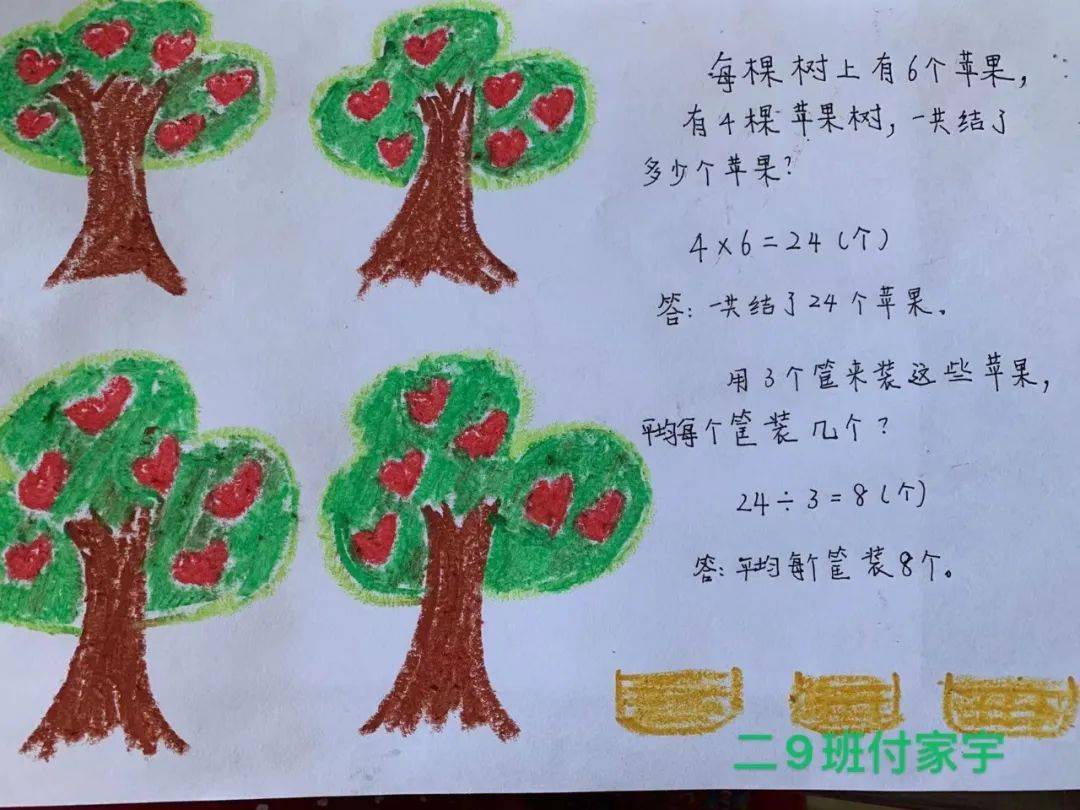 每棵树上有6个苹果,
有4棵苹果树,一共结了
多少个苹果?
4×6=24(个)
答:一共结了24个苹果。
用3个筐来装这些苹果,
平均每个筐装几个?
24÷3=8(个)
答:平均每个筐装8个。
二9班付家宇